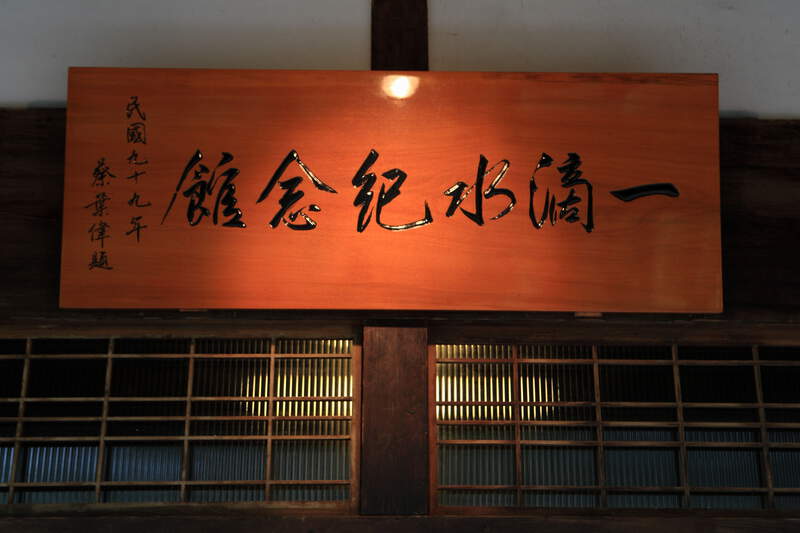 一滴水紀念館
民國九十九年
蔡葉偉題